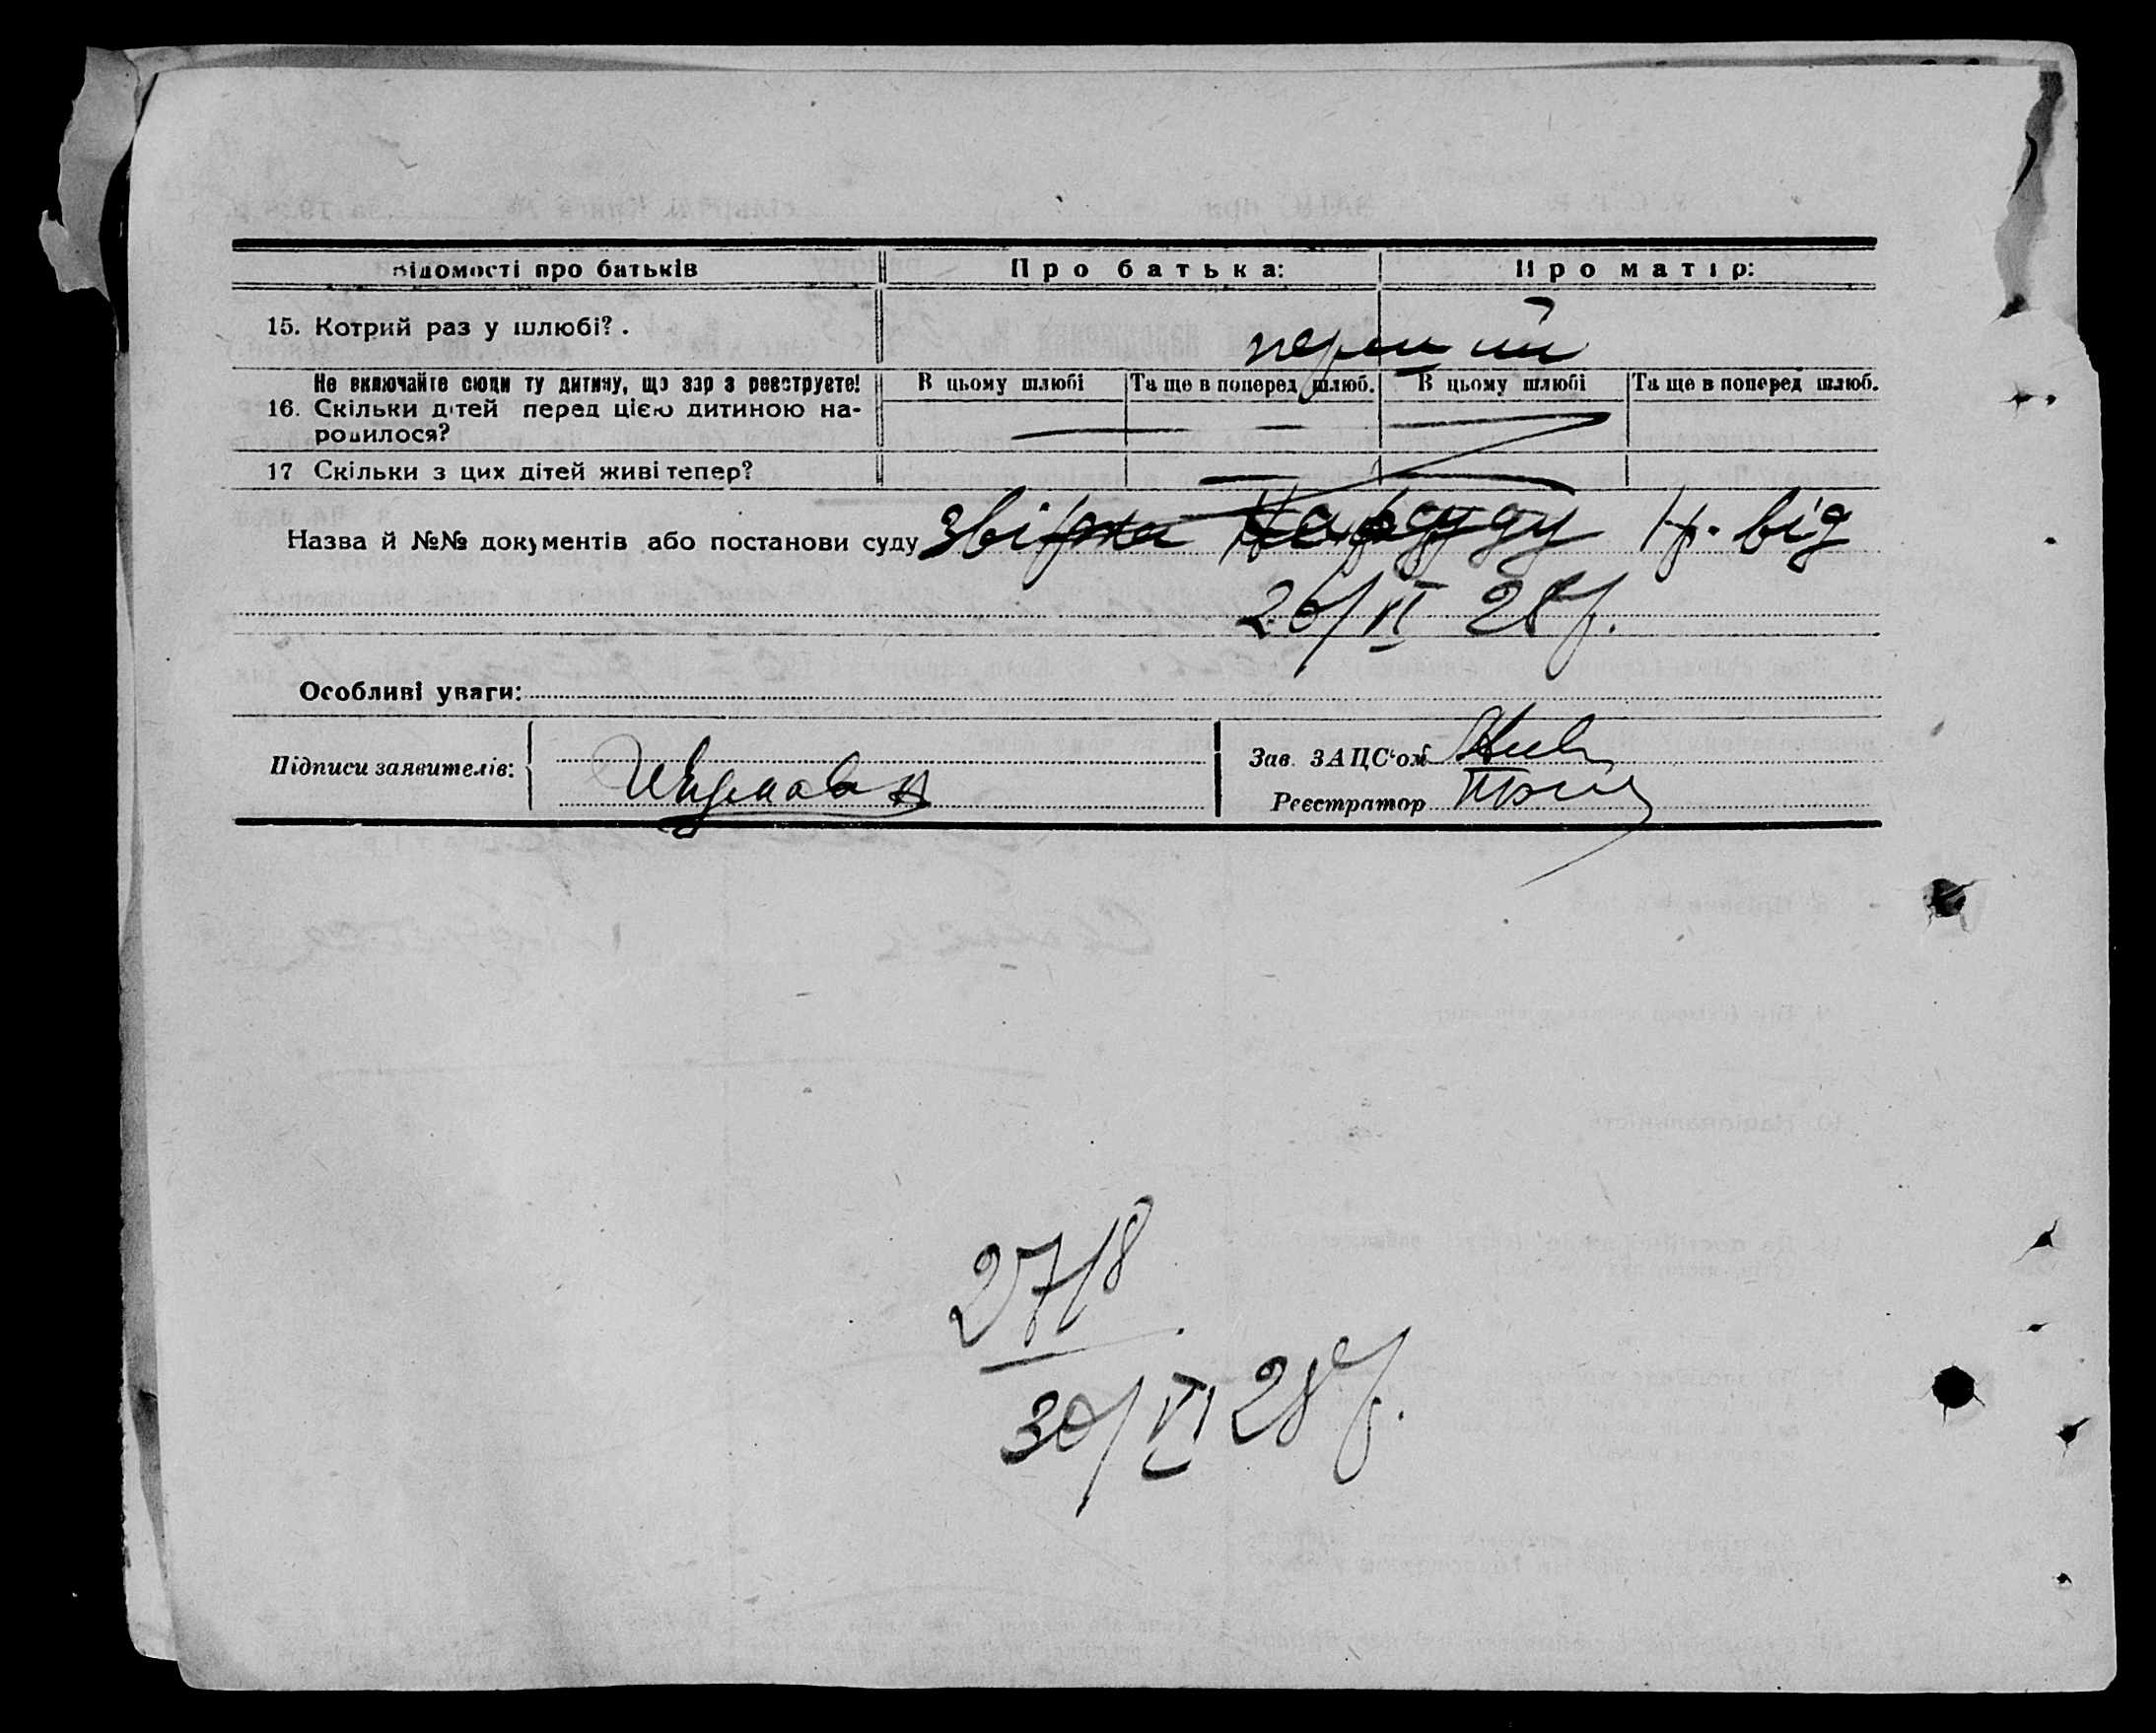 Відомості про батьків Про батька: Про матір:
15. Котрий раз у шлюбі? . перший
Не включайте сюди ту дитину, що зараз реєструєте! В цьому шлюбі Та ще в поперед. шлюб. В цьому шлюбі Та ще в поперед шлюб.
16. Скільки дітей перед цією дитиною на-
родилося? —
17 Скільки з цих дітей живі тепер? —
Назва й №№ документів або постанови суду від
26/VI 28 р.
Особливі уваги:
Підписи заявителів: Зав. ЗАЦС'ом
Реєстратор
27/8
30/VI 28 р.